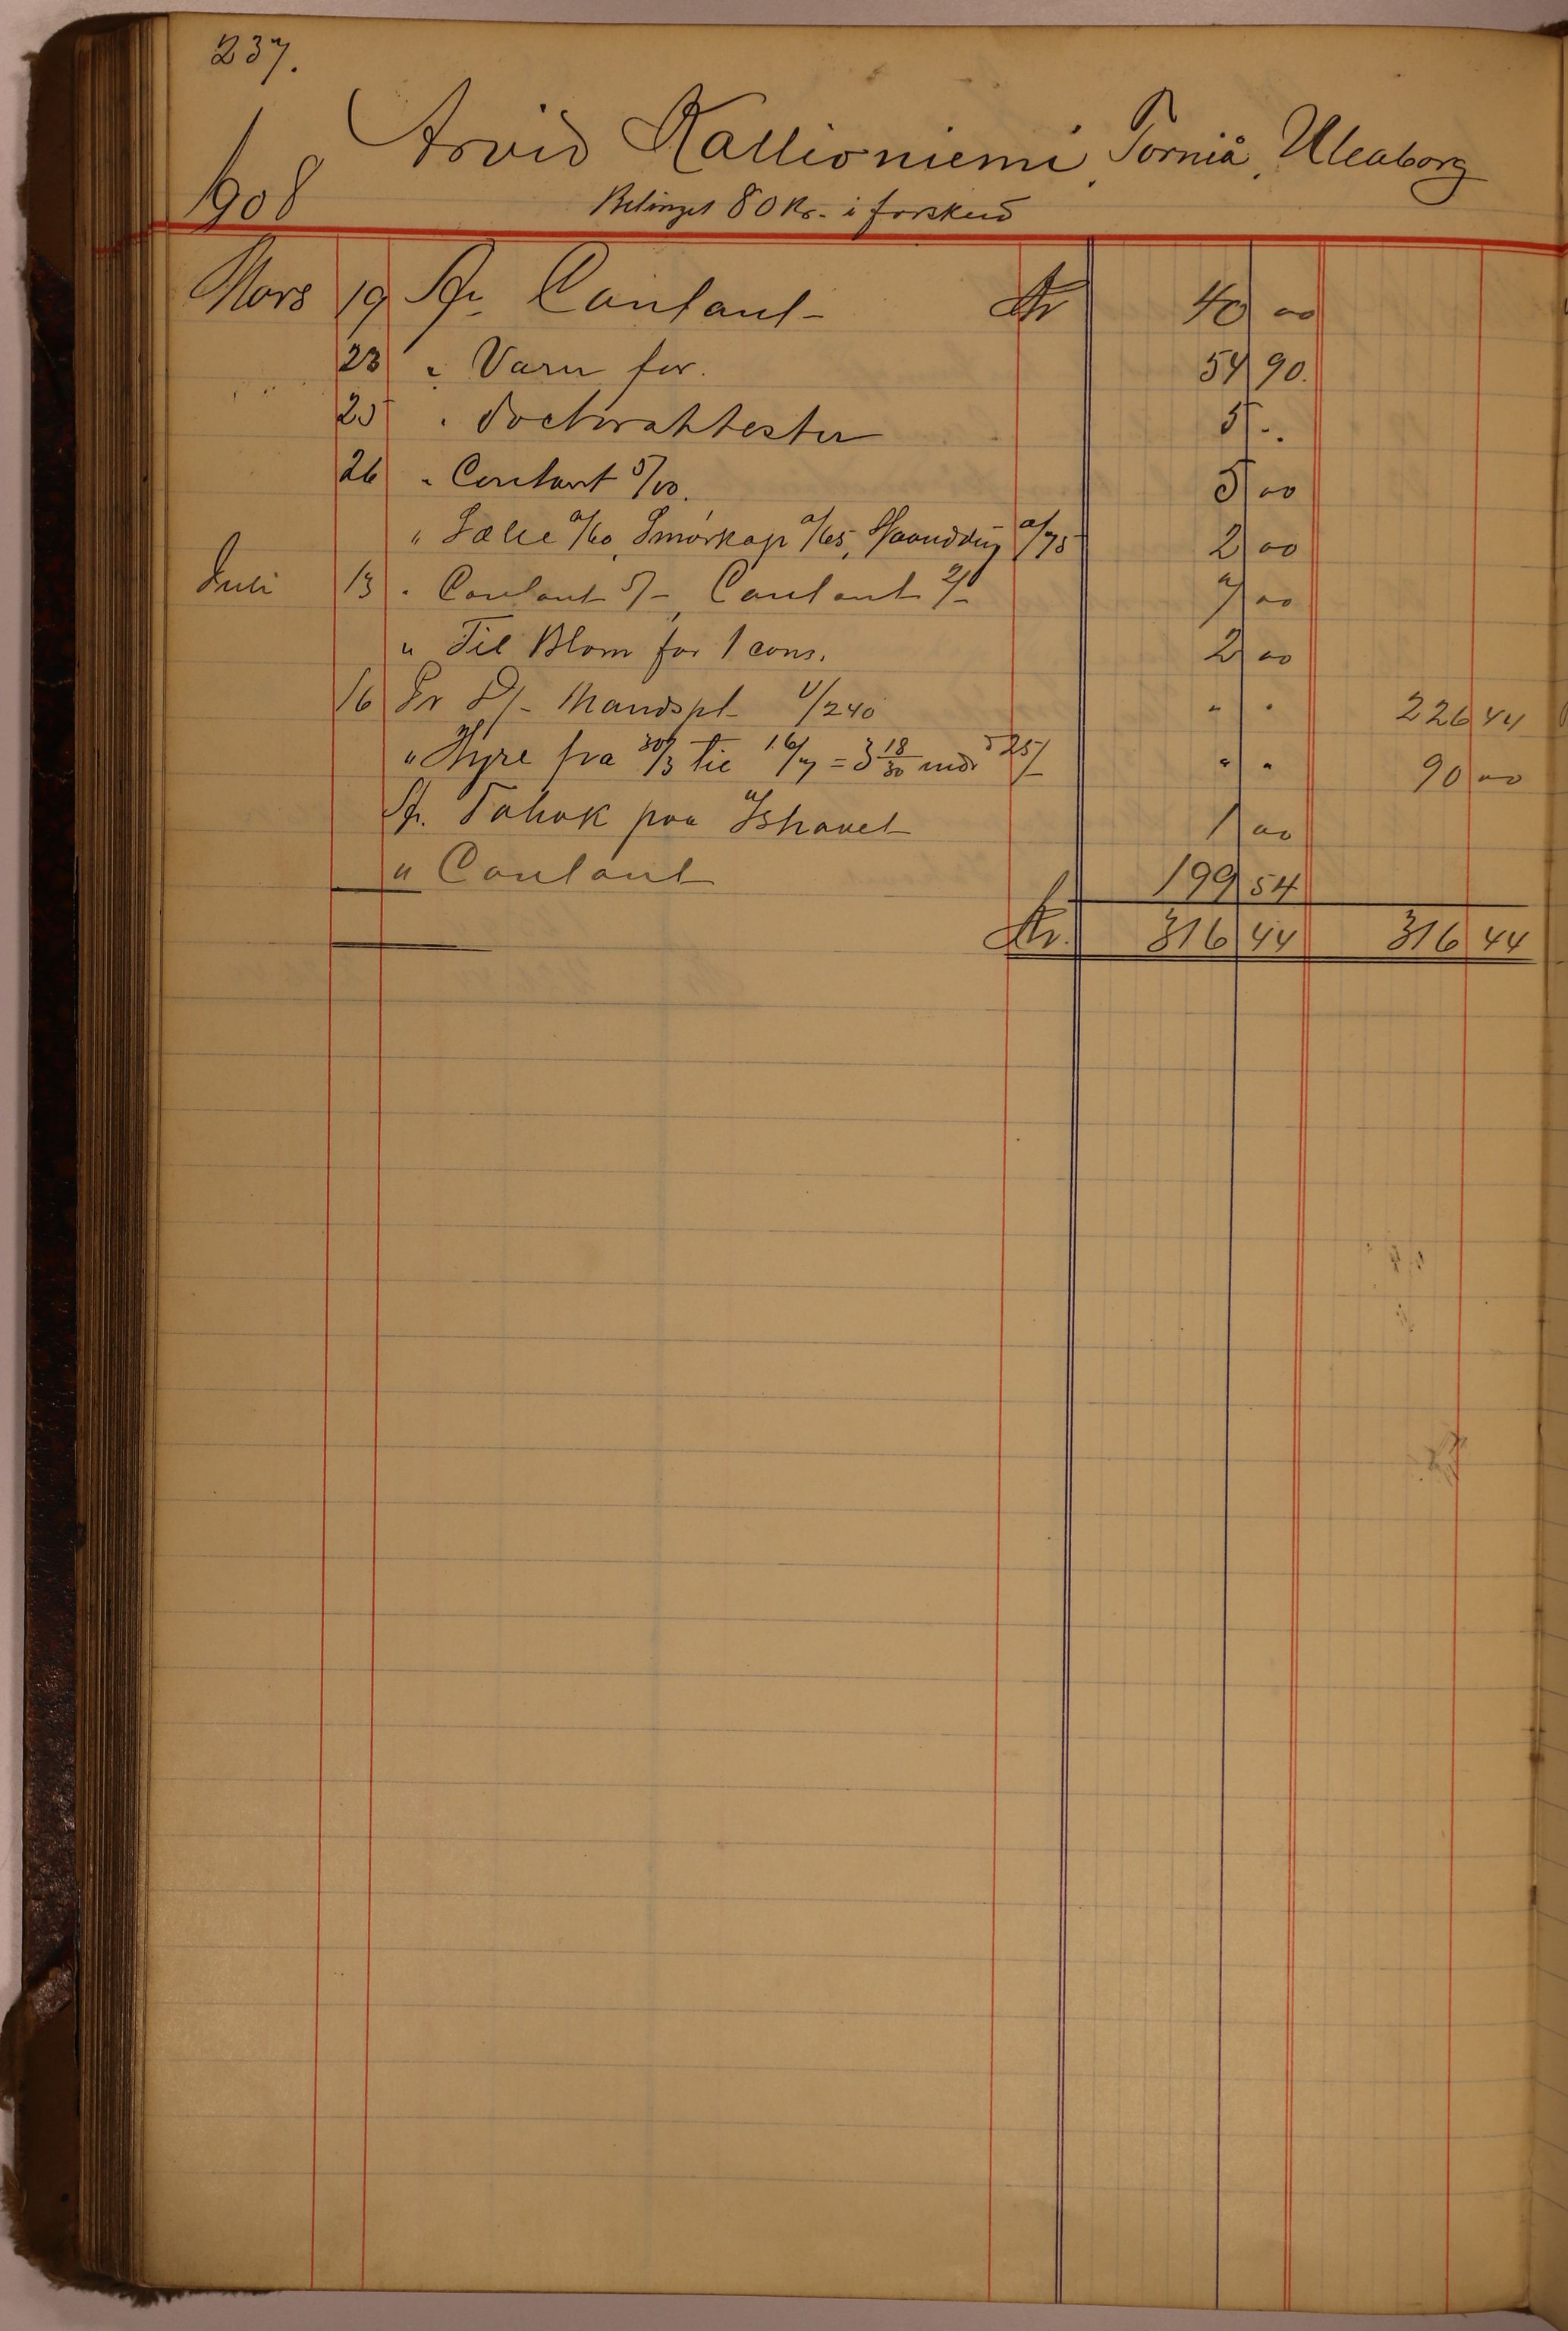 237.
Arvid Kallioniemi, Torniå, Uleaborg
1908 Betinget 80 Kr. i forskud
Mars 19 At Contant Kr 40 00
23 " Varer for. 54 90.
25 " doctorattester 5 -.
26 " Contant 5/00. 5 00
" Sæbe a/60, Smørkop a/65, a/75 2 00
Juli 13 " Contant 5/-, Contant 2/- 7 00
" Til Blom for 1 cons. 2 00
16 Pr 1/- Mandspt 1/240 " " 226 44
" Hyre fra 30/3 til 16/7 = 3 18/30 mdr 25/- " " 90 00
At. Tobak paa Ishavet 1 00
" Contant 199 54
Kr. 316 44 316 44